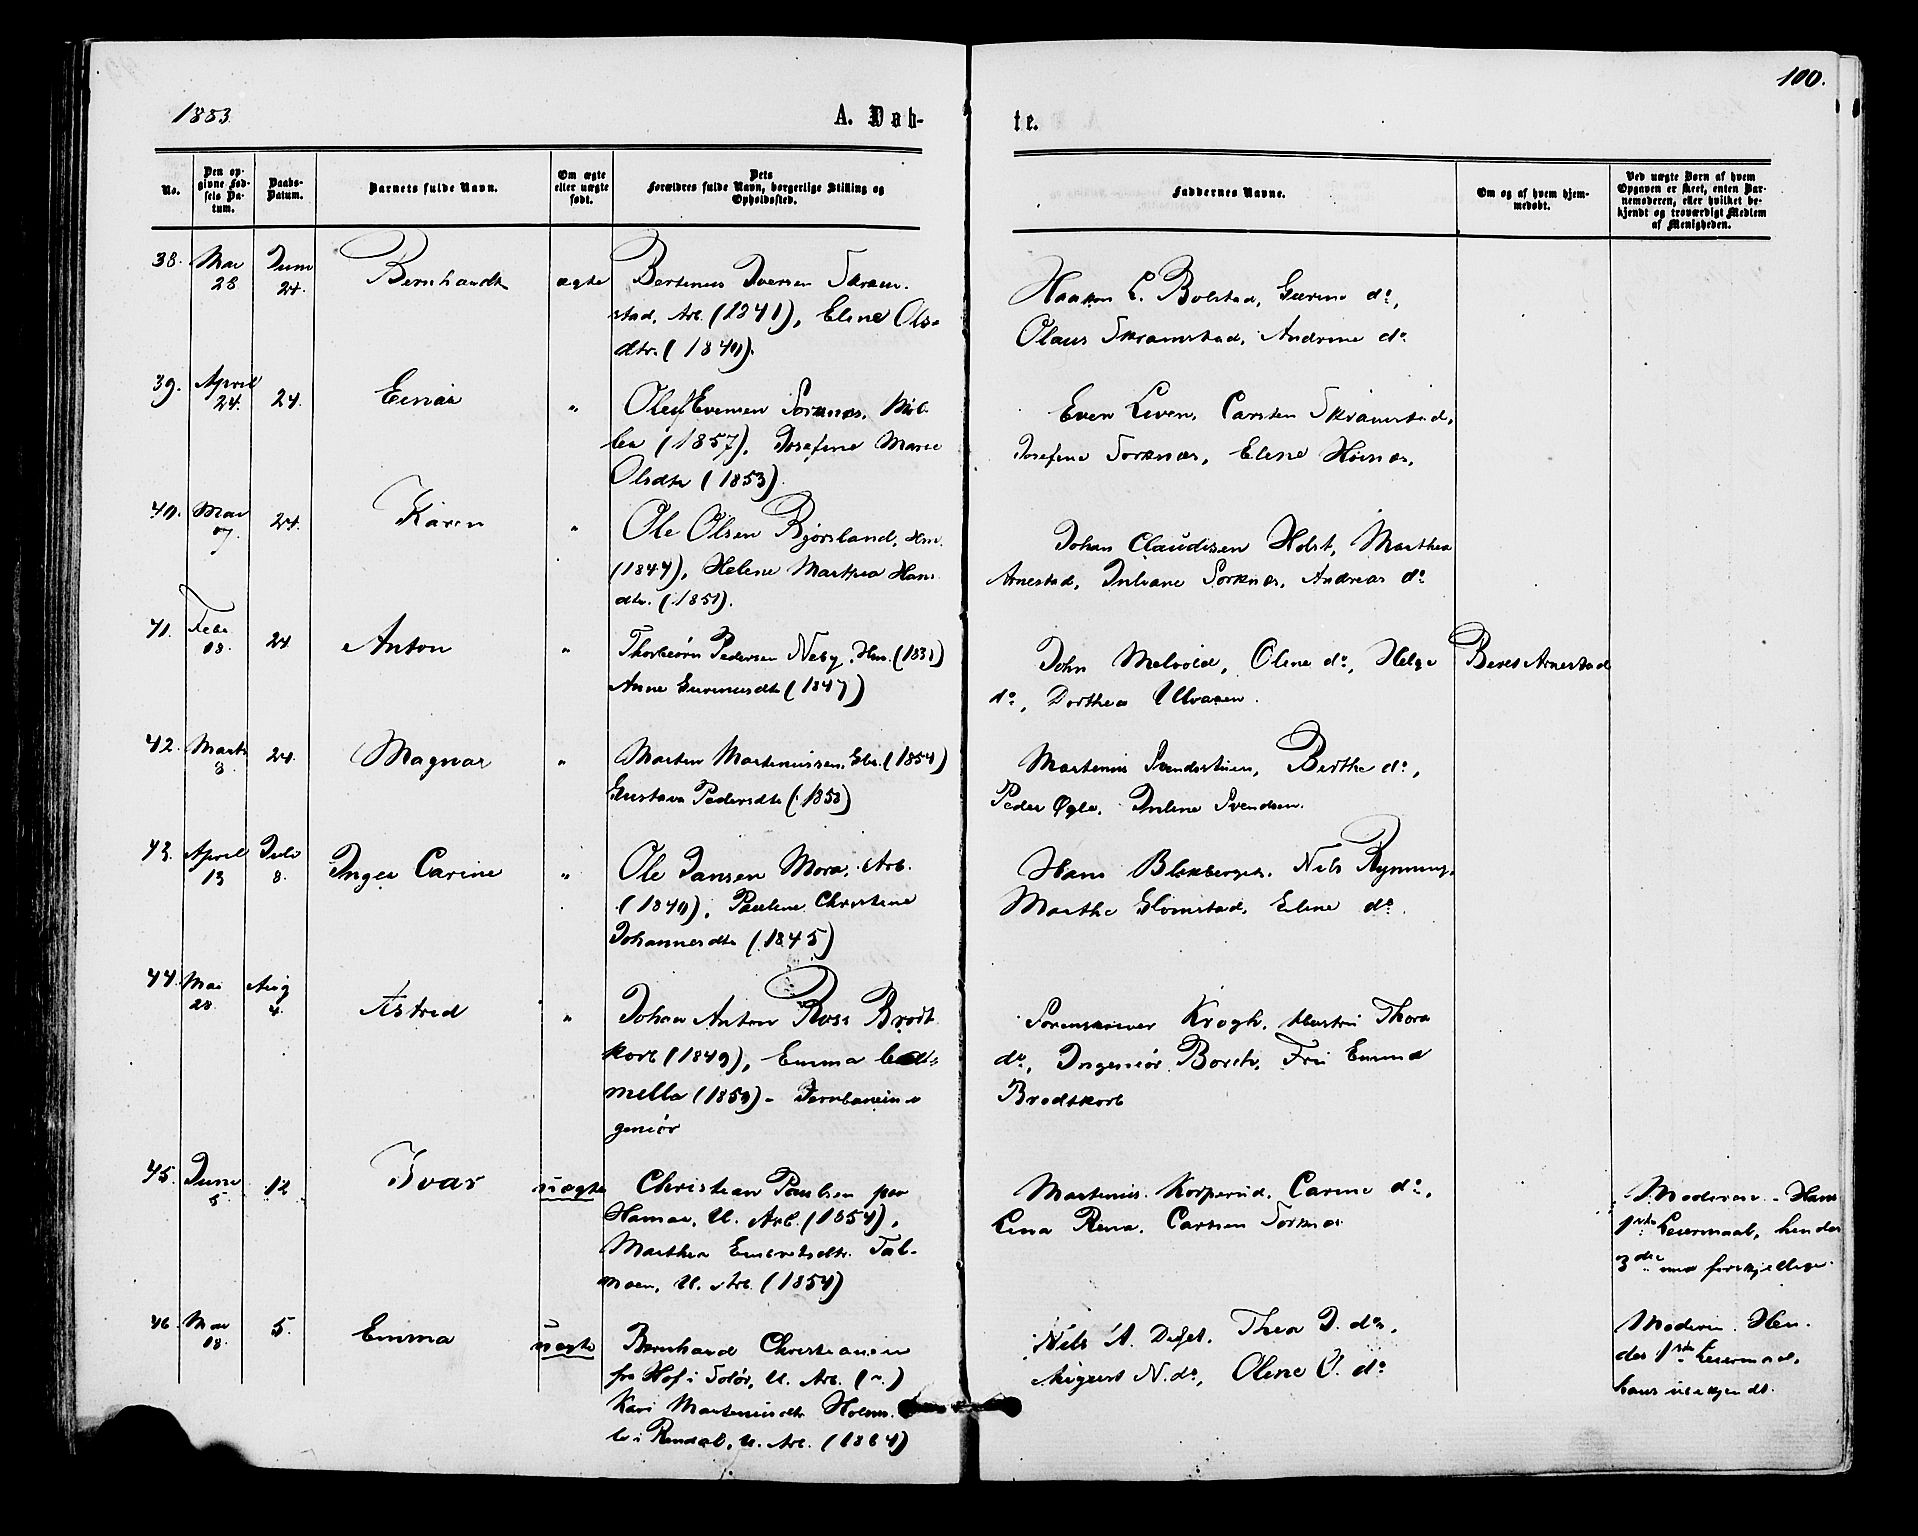 100.
1883
A. Døb-
te.
No.
Den op-
givne Fød-
sels Da-
tum.
Daabs-
Datum.
Barnets fulde Navn.
Om ægte
eller uægte
født.
Dets
Forældres fulde Navn, borgerlige Stilling og
Opholdssted.
Faddernes Navne.
Om og af hvem hjem-
medøbt.
Ved uægte Børn af hvem
Opgaven er skeet, enten Bar-
nemoderen, eller hvilket be-
kjendt og troværdigt Medlem
af Menigheden.
38. Mai 28 Juni 24. Bernhardt ægte
Bertinius Iversen Skram-
stad, Arb. (1841), Eline Ols-
dtr. (1840).
Haakon L. Bolstad, Gurine do,
Olaus Skramstad, Andrine do
39. April 24. 24. Einar "
Oluf Evensen Sorknæs, Møl-
ler (1857), Josefine Marie
Olsdtr (1853).
Even Liven, Carsten Skramstad,
Josefine Sorknæs, Eline Hornæs.
40. Mai 07. 24. Karen "
Ole Olsen Bjørsland, Hm.
(1844), Helene Marthea Hans
dtr. (1851).
Johan Claudisen Holst, Marthea
Arnestad, Juliane Sorknæs, Andreas do
41. Febr 08. 24 Anton "
Thorbiørn Pedersen Neby, Hm. (1831)
Anne Gunnersdtr (1847)
John Melvold, Oline do, Helge
do, Dorthea Ulvaaen.
Beret Arnestad
42. Marts 8. 24. Magnar "
Morten Martiniussen, Gbr. (1854)
Gustava Pedersdtr (1858)
Martinius Svendstuen, Berthe do,
Peder Øgle, Juline Svendsen.
43. April 13 Juli 8. Inga Carine "
Ole Jansen Mora, Arb.
(1840), Pauline Christine
Johannesdtr (1845)
Hans Blakberget, Nils Rynning,
Marthe Glomstad, Eline do.
44. Mai 28 Aug 4. Astrid "
Johan Anton Ross Brodt
korb (1849), Emma
mella (1859) - Jernbanein-
geniør
Sorenskriver Krogh, Hustru Thora
do, Ingeniør Borch, Fru Emma
Brodtkorb
45. Juni 5. 12 Ivar uægte
Christian Paulsen paa
Hamar, U. Arb. (1854),
Marthea Embretsdtr. Tal-
moen, U. Arb. (1854)
Martinius Korperud, Carine do,
Lina Rena, Carsten Sorknæs
Moderen. - Hans
1ste Leiermaal, hendes
3die med forskjellige.
46. Mai 08. 5. Emma uægte
Bernhard Christiansen
fra Hof i Solør, U. Arb. ( )
Kari Martiniusdtr Holm-
bo i Rendal, U. Arb. (1864)
Nils A. Deset, Thea J. do,
August N. do, Oline O. do
Moderen. Hen-
des 1ste Leiermaal,
hans ubekjendt.